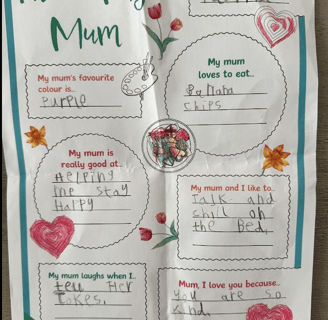 Mum
My mum's favourite
colour is..
Purple
My mum
loves to eat..
Banana
chips
My mum is
really good at..
Helping
me stay
Happy
My mum and I like to..
Talk and
chill on
the Bed.
My mum laughs when I..
tell Her
Jokes.
Mum, I love you because..
you are so
kind.